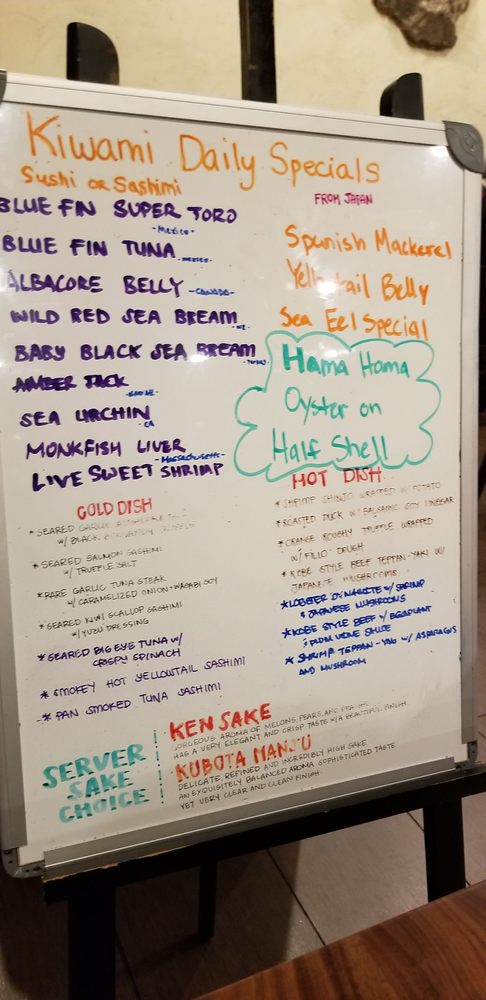 Kiwami Daily Specials
Sushi or Sashimi
BLUE FIN SUPER TORO
-Mexico-
BLUE FIN TUNA
-mexico-
ALBACORE BELLY -CANADA-
WILD RED SEA BREAM -NZ-
BABY BLACK SEA BREAM
AMBER JACK
SEA URCHIN
CA
MONKFISH LIVER
-Massachusetts-
LIVE SWEET SHRIMP
FROM JAPAN
Spanish Mackerel
Yellowtail Belly
Sea Eel Special
Hama Hama
Oyster on
Half Shell
COLD DISH
*SEARED GARLIC
W/ BLACK TRUFFLE
*SEARED SALMON SASHIMI
W/ TRUFFLE SALT
*RARE GARLIC TUNA STEAK
W/ CARAMELIZED ONION + WASABI SOY
*SEARED KIWI SCALLOP SASHIMI
W/ YUZU DRESSING
*SEARED BIG EYE TUNA W/
CRISPY SPINACH
*SMOKEY HOT YELLOWTAIL SASHIMI
*PAN SMOKED TUNA SASHIMI
HOT DISH
*SHRIMP SHINJO WRAPPED W/ POTATO
*ROASTED DUCK W/ BALSAMIC SOY VINEGAR
*ORANGE ROUGHY TRUFFLE WRAPPED
W/ FILLO DOUGH
*KOBE STYLE BEEF TEPPAN-YAKI W/
JAPANESE MUSHROOMS
*LOBSTER DYNAMITE W/ SHRIMP
& JAPANESE MUSHROOMS
*KOBE STYLE BEEF W/ EGGPLANT
& PLUM WINE SAUCE
*SHRIMP TEPPAN-YAKI W/ ASPARAGUS
AND MUSHROOM
SERVER
SAKE
CHOICE
KEN SAKE
GORGEOUS AROMA OF MELONS, PEARS, AND
HAS A VERY ELEGANT AND CRISP TASTE W/A BEAUTIFUL FINISH.
KUBOTA MANJU
DELICATE, REFINED AND INCREDIBLY HIGH SAKE
AN EXQUISITELY BALANCED AROMA, SOPHISTICATED TASTE
YET VERY CLEAR AND CLEAN FINISH